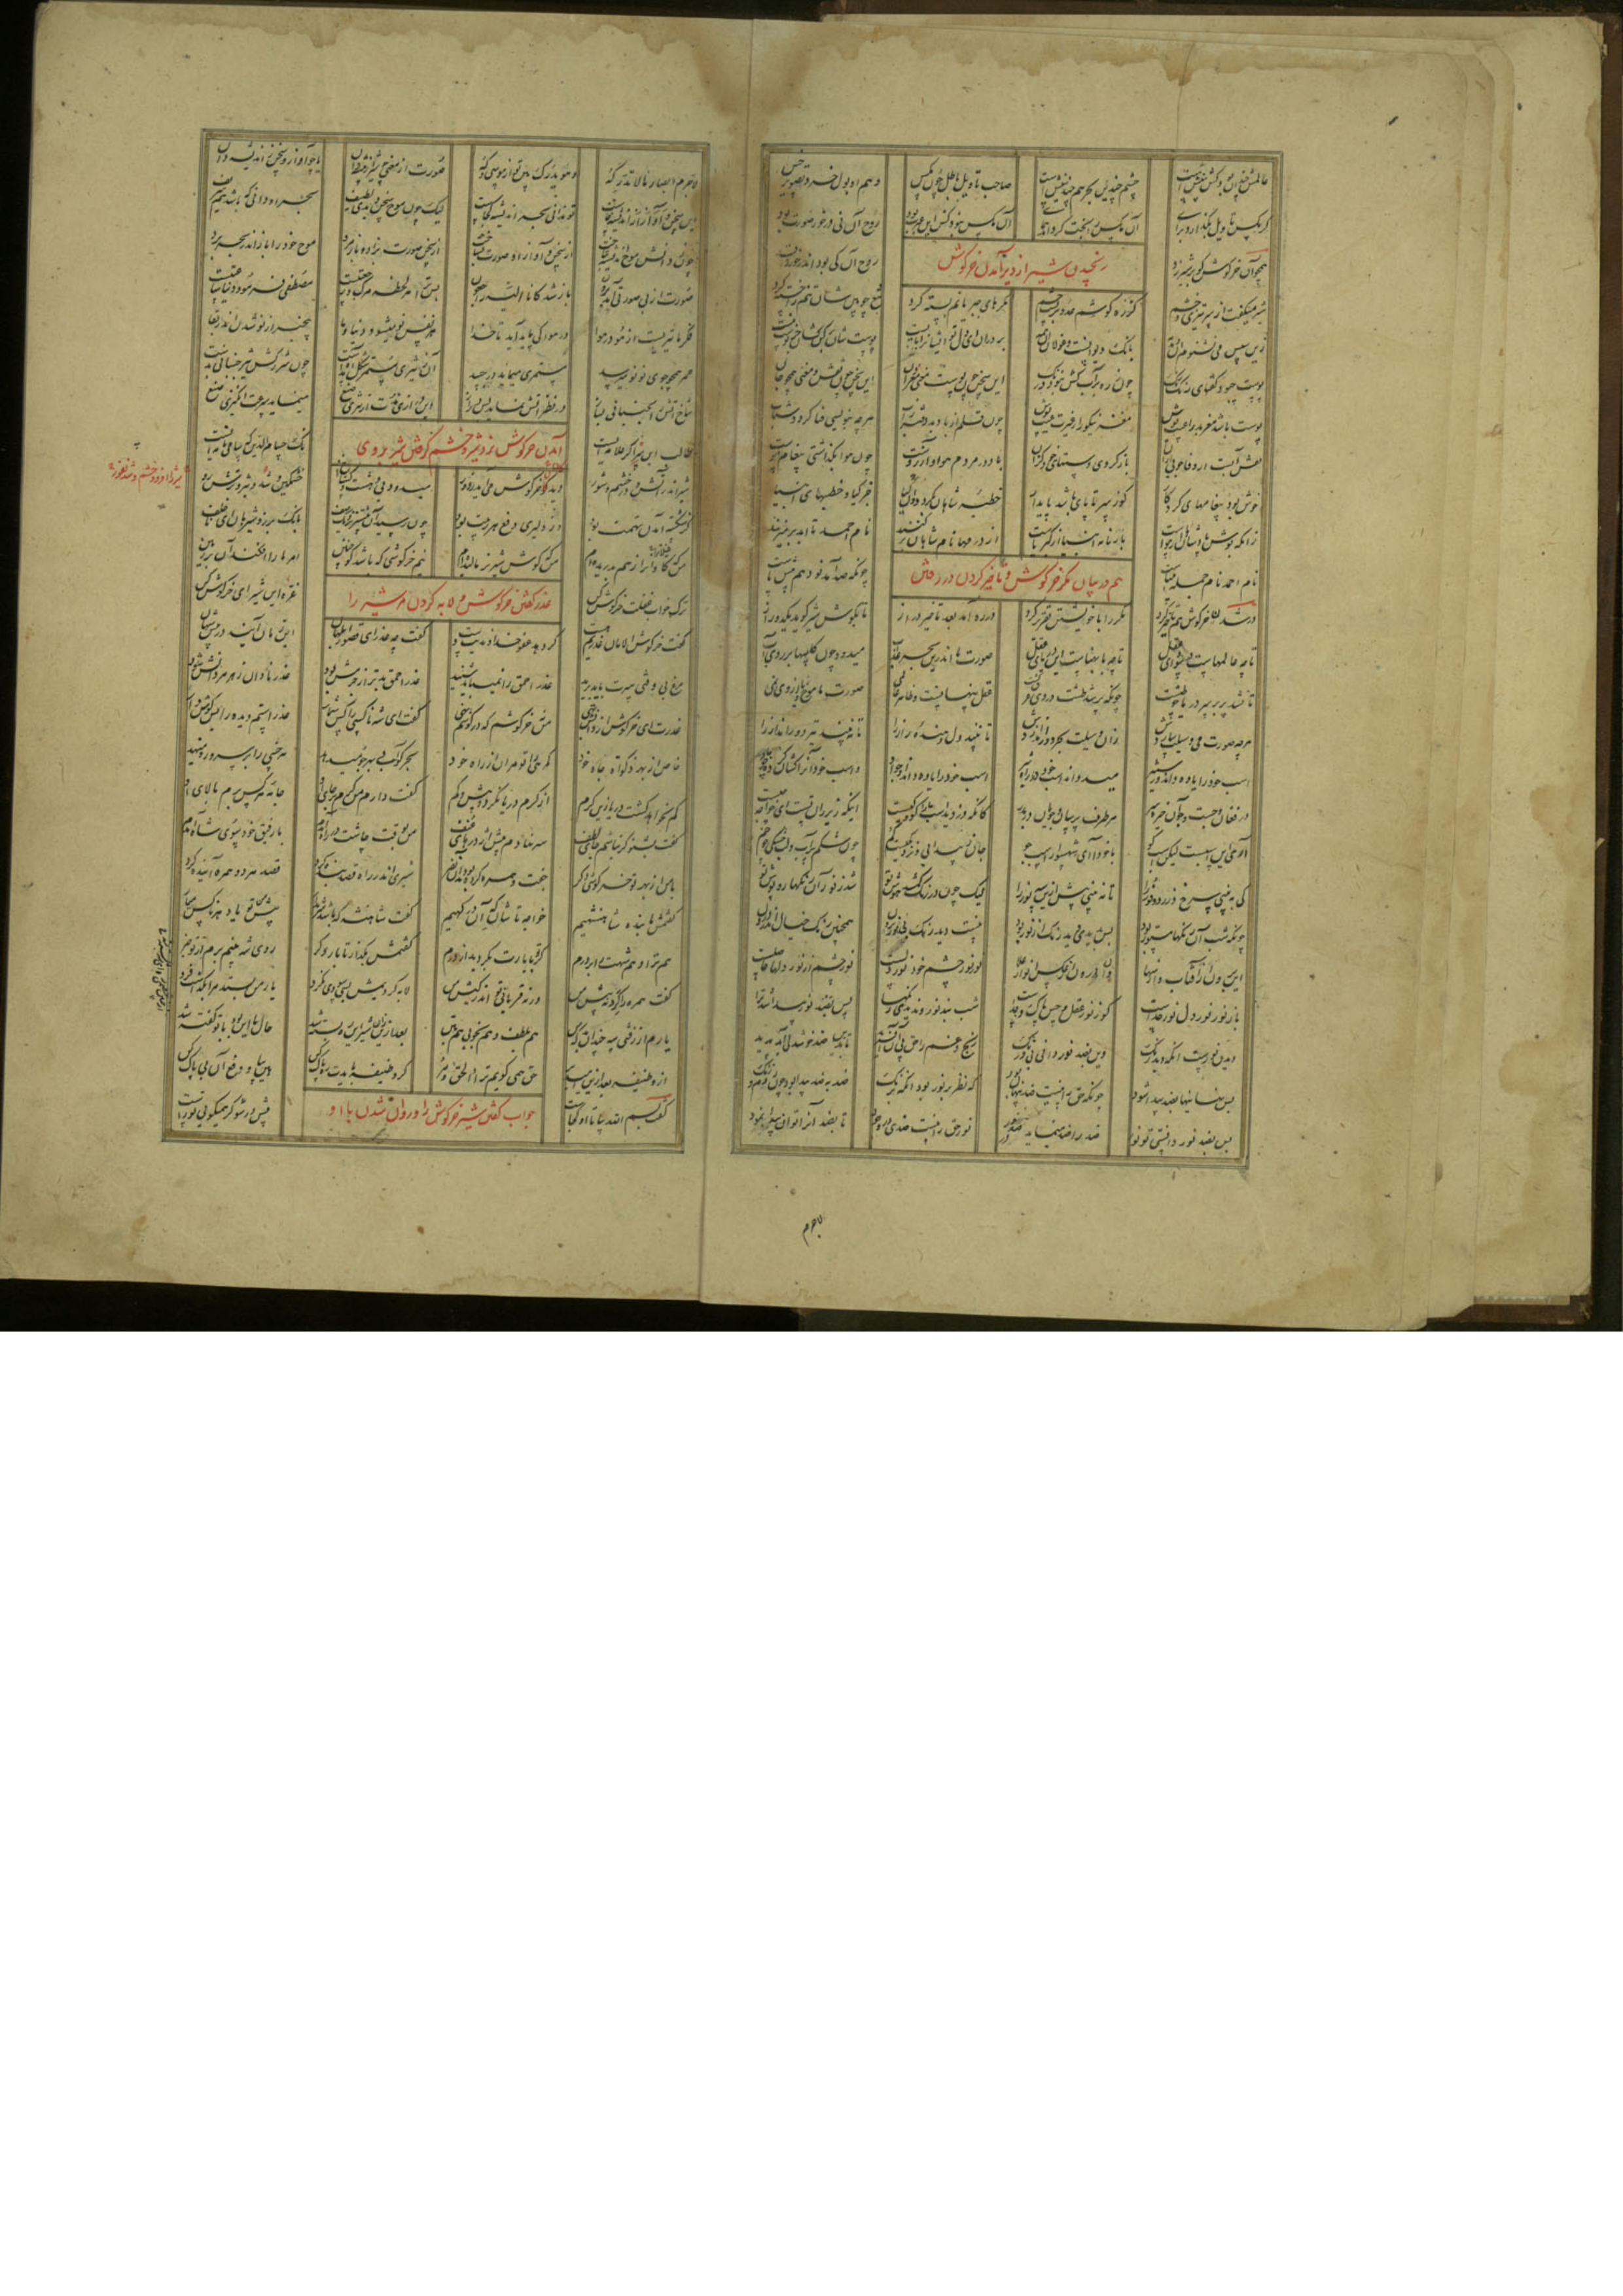 عالمش چندان بود کش بینش است چشم چندین بحر هم چندینش است صاحب تاویل باطل چون مگس وهم او بول خر و تصویر خس
گر مگس تاویل بگذارد برای آن مگس را بخت گرداند همای آن مگس نبود کش این عبرت بود روح آن نی در خور صورت بود
همچو آن خرگوش کو بر شیر زد روح آن کی بود اندر خورد قد
رنجیدن شیر از دیر آمدن خرگوش
شیر میگفت از سر تیزی و خشم کز ره گوشم عدو بربست چشم مکرهای جبریانم بسته کرد تیغ چوبین شان تنم را خسته کرد
زین سپس من نشنوم آن دمدمه بانک دیوانست و غولان آن همه بردران ای دل تو ایشانرا مایست پوست شان برکن کشان جز پوست نیست
پوست چبود گفتهای رنک رنک چون زره بر آب کش نبود درنک این سخن چون پوست و معنی مغز دان این سخن چون نقش و معنی همچو جان
پوست باشد مغز بد را عیب پوش مغز نیکو را ز غیرت غیب پوش چون قلم از باد بد دفتر ز آب هرچه بنویسی فنا گردد شتاب
نقش آبست ار وفا جویی ازان باز گردی دستهای خود گزان باد در مردم هوا و آرزوست چون هوا بگذاشتی پیغام هوست
خوش بود پیغامهای کردگار کو ز سر تا پای باشد پایدار خطبه شاهان بگردد وان کیا جز کیا و خطبهای انبیا
زانکه بوش پادشاهان از هواست بارنامه انبیا از کبریاست از درمها نام شاهان بر کنند نام احمد تا ابد بر میزنند
نام احمد نام جمله انبیاست چونکه صد آمد نود هم پیش ماست
هم در بیان مکر خرگوش و تاخیر کردن در رفتن
در شدن خرگوش هم تاخیر کرد مکر را با خویشتن تقریر کرد در ره آمد بعد تاخیر دراز تا بگوش شیر گوید یک دو راز
تا چه عالمهاست در سودای عقل تا چه با پهناست این دریای عقل صورت ما اندرین بحر عذاب میدود چون کاسها بر روی آب
تا نشد پر بر سر دریا چو طشت چونکه پر شد طشت در وی غرق گشت عقل پنهانست و ظاهر عالمی صورت ما موج یا از وی نمی
هرچه صورت می وسیلت سازدش زان وسیلت بحر دور اندازدش تا نبیند دل دهنده راز را تا نبیند تیر دور انداز را
اسب خود را یاوه داند وز ستیز میدواند اسب خود در راه تیز اسب خود را یاوه داند آن جواد و اسب خود او را کشان کرده چو باد
در فغان و جست و جو آن خیره سر هر طرف پرسان و جویان دربدر کانکه دزدید اسب ما را کو و کیست اینکه زیر ران تست ای خواجه چیست
آری این اسبست لیکن اسب کو با خود آ ای شهسوار اسب جو جان ز پیدایی و نزدیکیست گم چون شکم پر آب و لب خشکی چو خم
کی ببینی سرخ و زرد و فور را تا نبینی پیش ازین سه نور را لیک چون در رنک گم شد هوش تو شد ز نور آن رنگها روپوش تو
چونکه شب آن رنگها مستور بود پس بدیدی دید رنک از نور بود نیست دید رنک بی نور برون همچنین رنک خیال اندرون
این برون از آفتاب و از سها وان درون از عکس انوار علا نور نور چشم خود نور دلست نور چشم از نور دلها حاصلست
باز نور نور دل نور خداست کو ز نور عقل و حس پاک و جداست شب نبد نور و ندیدی رنگها پس بضد نور پیدا شد ترا
دیدن نورست آنگه دید رنک وین بضد نور دانی بی درنک رنج و غم را حق پی آن آفرید تا بدین ضد خوشدلی آید پدید
پس نهانیها بضد پیدا شود چونکه حق را نیست ضد پنهان بود که نظر بر نور بود آنگه برنک ضد بضد پیدا بود چون روم و زنک
پس بضد نور دانستی تو نور ضد ضد را مینماید در صدور نور حق را نیست ضدی در وجود تا بضد آنرا توان پیدا نمود
لاجرم ابصار نا لا تدرکه و هو یدرک بین تو از موسی و که صورت از معنی چو شیر از بیشه دان یا چو آواز و سخن ز اندیشه دان
این سخن و آواز از اندیشه خاست تو ندانی بحر اندیشه کجاست لیک چون موج سخن دیدی لطیف بحر او دانی که باشد هم شریف
چون ز دانش موج اندیشه بتاخت از سخن و آواز او صورت بساخت از سخن صورت بزاد و باز مرد موج خود را باز اندر بحر برد
صورت از بی صورتی آمد برون باز شد کانا الیه راجعون پس ترا هر لحظه مرگ و رجعتیست مصطفی فرمود دنیا ساعتیست
فکر ما تیریست از هو در هوا در هوا کی پاید آید تا خدا هر نفس نو میشود دنیا و ما بیخبر از نو شدن اندر بقا
عمر همچو جوی نو نو میرسد مستمری مینماید در جسد آن ز تیزی مستمر شکل آمدست چون شرر کش تیز جنبانی بدست
شاخ آتش را بجنبانی بساز در نظر آتش نماید بس دراز این درازی مدت از تیزی صنع مینماید سرعت انگیزی صنع
طالب این سر اگر علامه ایست نک حسام الدین که سامی نامه ایست
آمدن خرگوش نزد شیر و خشم گرفتن شیر بر وی
شیر اندر آتش و در خشم و شور دید کان خرگوش می آید ز دور میدود بی دهشت و گستاخ او خشمگین و تند و تیز و ترش رو
کز شکسته آمدن تهمت بود وز دلیری دفع هر ریبت بود چون رسید او پیشتر نزدیک صف بانک برزد شیر هان ای ناخلف
من که گاوان را ز هم بدریده ام من که گوش شیر نر مالیده ام نیم خرگوشی که باشد کو چنین امر ما را افکند او بر زمین
ترک خواب غفلت خرگوش کن غره این شیر ای خر گوش کن
عذر گفتن خرگوش و لابه کردن مر شیر را
گفت خرگوش الامان عذریم هست گر دهد عفو خداوندیت دست گفت چه عذر ای قصور ابلهان این زمان آیند در پیش شهان
مرغ بی وقتی سرت باید برید عذر احمق را نمیباید شنید عذر احمق بدتر از جرمش بود عذر نادان زهر هر دانش شود
عذرت ای خرگوش از دانش تهی من نه خرگوشم که در گوشم نهی گفت ای شه ناکسی را کس شمار عذر استم دیده را گوش دار
خاص از بهر زکات جاه خود گمرهی را تو مران از راه خود بحر کو آبی بهر جو میدهد هر خسی را بر سر و رو مینهد
کم نخواهد گشت دریا زین کرم از کرم دریا نگردد بیش و کم گفت دارم من کرم بر جای او جامه هر کس برم بالای او
گفت بشنو گر نباشم جای لطف سر نهادم پیش اژدرهای عنف من بوقت چاشت در راه آمدم با رفیق خود سوی شاه آمدم
با من از بهر تو خرگوشی دگر جفت و همره کرده بودند آن نفر شیری اندر راه قصد بنده کرد قصد هر دو همره آینده کرد
گفتمش ما بنده شاهنشهیم خواجه تاشان که آن درگهیم گفت شاهنشه که باشد شرم دار پیش من تو یاد هر ناکس میار
هم ترا و هم شهت را بر درم گر تو با یارت بگردید از درم گفتمش بگذار تا بار دگر روی شه بینم برم از تو خبر
گفت همره را گرو نه پیش من ورنه قربانی تو اندر کیش من لابه کردیمش بسی سودی نکرد یار من بستد مرا بگذاشت فرد
یارم از زفتی سه چندان بد که من هم بلطف و هم بخوبی هم بتن بعد ازین زان شیر این ره بسته شد حال ما این بود با تو گفته شد
از وظیفه بعد ازین امید بر حق همی گویم ترا الحق مر گر وظیفه بایدت ره پاک کن هین بیا و دفع آن بی باک کن
گفت بسم الله بیا تا او کجاست پیش در شو گر همیگویی تو راست
جواب گفتن شیر خرگوش را و روان شدن با او